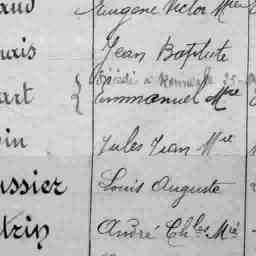 aud Eugène Victor Mie
ais Jean Baptiste
Décédé à
art { Emmanuel Mre
in Jules Jean Mre
ussier Louis Auguste
trin André Chles Mie